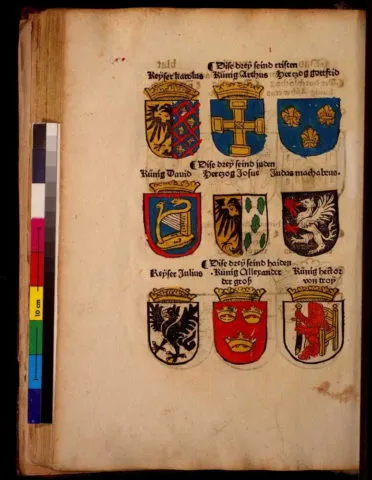 ¶ Dise drey seind cristen
Keyser karolus Künig Arthus Hertzog gottfrid
¶ Dise drey seind juden
Künig Dauid Hertzog Josue Judas machabeus.
¶ Dise drey seind haiden
Keyser Julius Künig Allexander Künig hector
der groß von troy
10 cm